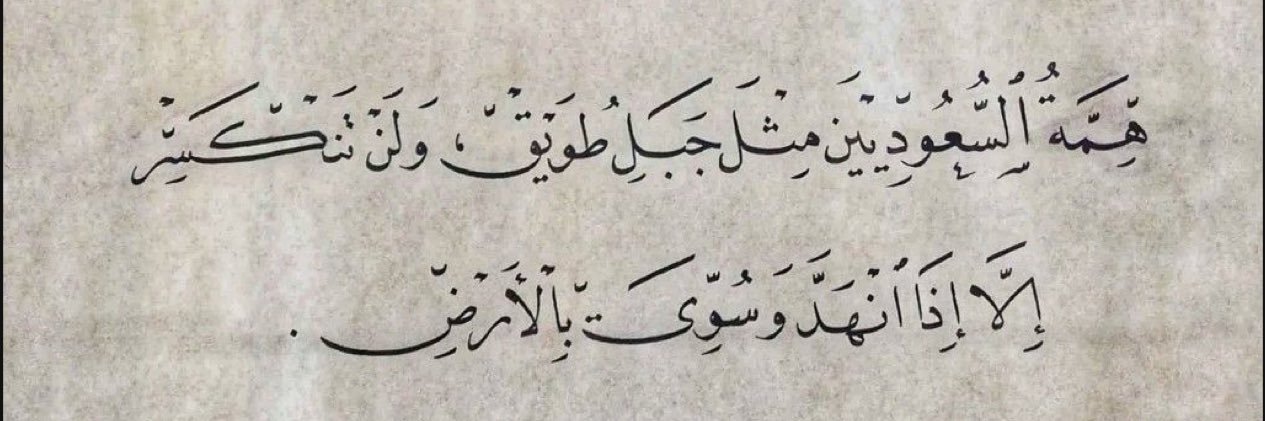 هِمَّةُ السُّعُودِيِّيْنَ مِثْلَ جَبَلِ طُوَيْقْ، وَلَنْ تَنْكَسِرْ
إِلَّا إِذَا انْهَدَّ وَسُوِّىَ بِالْأَرْضِ.